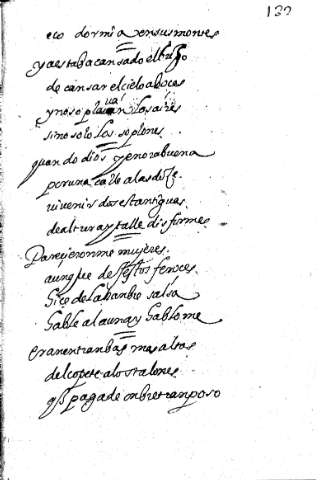 132
eco dormia en sus montes
ya estaba cansado el bufo
de cansar el cielo a boces
y no soplauan los aires
sino solo los soplones
quando dios y enorabuena
por una calle a las doze
vi venir dos estantiguas
de altura y talle disformes
Parezieronme mujeres
aunque de gestos feroces
de la hanbre salsa
hable a la una y hablome
eran entranbas mas altas
del copete a los talones
q paga de onbre tranposo